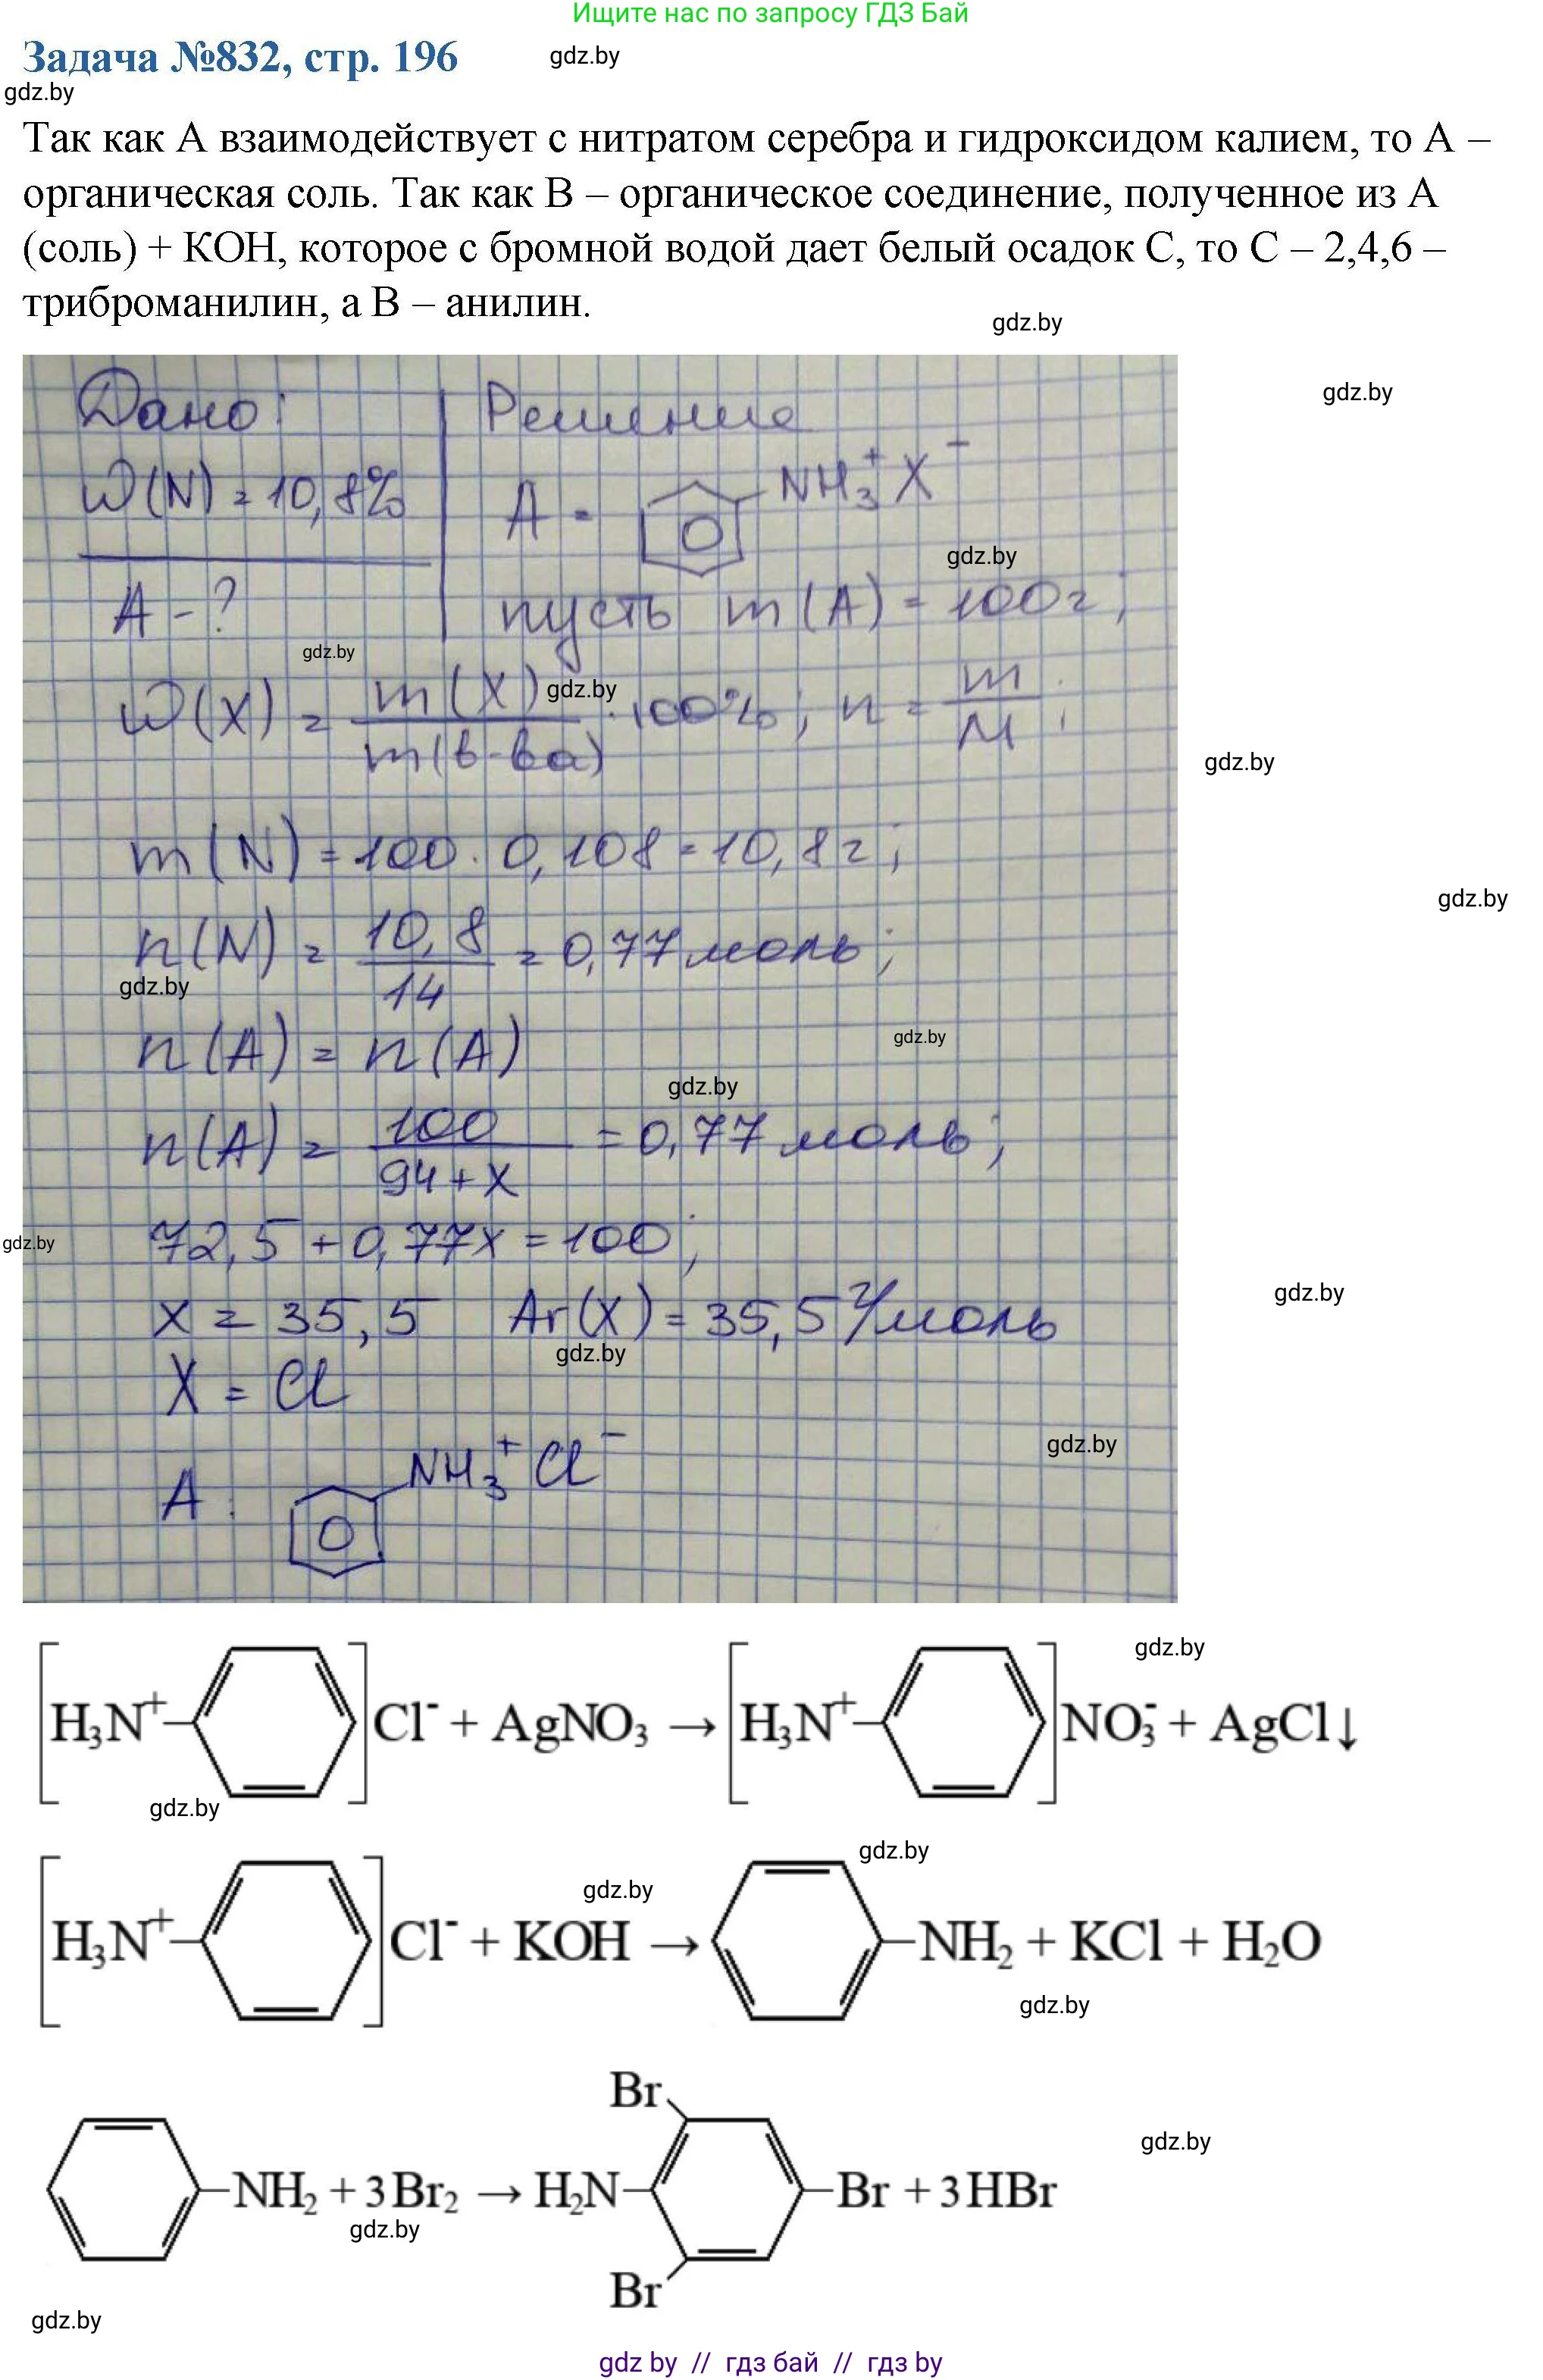 Ищите нас по запросу ГДЗ Бай
Задача №832, стр. 196
gdz.by
gdz.by
Так как А взаимодействует с нитратом серебра и гидроксидом калием, то А –
органическая соль. Так как В – органическое соединение, полученное из А
(соль) + КОН, которое с бромной водой дает белый осадок С, то С – 2,4,6 –
триброманилин, а В – анилин.
gdz.by
Дано: Решение
gdz.by
W(N) = 10,8% A = NH₃⁺X⁻
gdz.by
A - ? пусть m(A) = 100г;
gdz.by
W(X) = m(X) / m(в-ва) · 100%; n = m / M;
gdz.by
gdz.by
m(N) = 100 · 0,108 = 10,8г;
gdz.by
n(N) = 10,8 / 14 = 0,77 моль;
gdz.by
n(A) = n(A)
gdz.by
gdz.by
n(A) = 100 / 94+X = 0,77 моль;
72,5 + 0,77X = 100;
gdz.by
gdz.by
X = 35,5 Ar(X) = 35,5 г/моль
gdz.by
X = Cl
gdz.by
A: NH₃⁺Cl⁻
gdz.by
[H₃N⁺– ]Cl⁻ + AgNO₃ → [H₃N⁺– ]NO₃⁻ + AgCl↓
gdz.by
gdz.by
gdz.by
[H₃N⁺– ]Cl⁻ + KOH → –NH₂ + KCl + H₂O
gdz.by
Br
gdz.by
–NH₂ + 3Br₂ → H₂N– –Br + 3HBr
gdz.by
Br
gdz.by
gdz by // гдз бай // гдз by